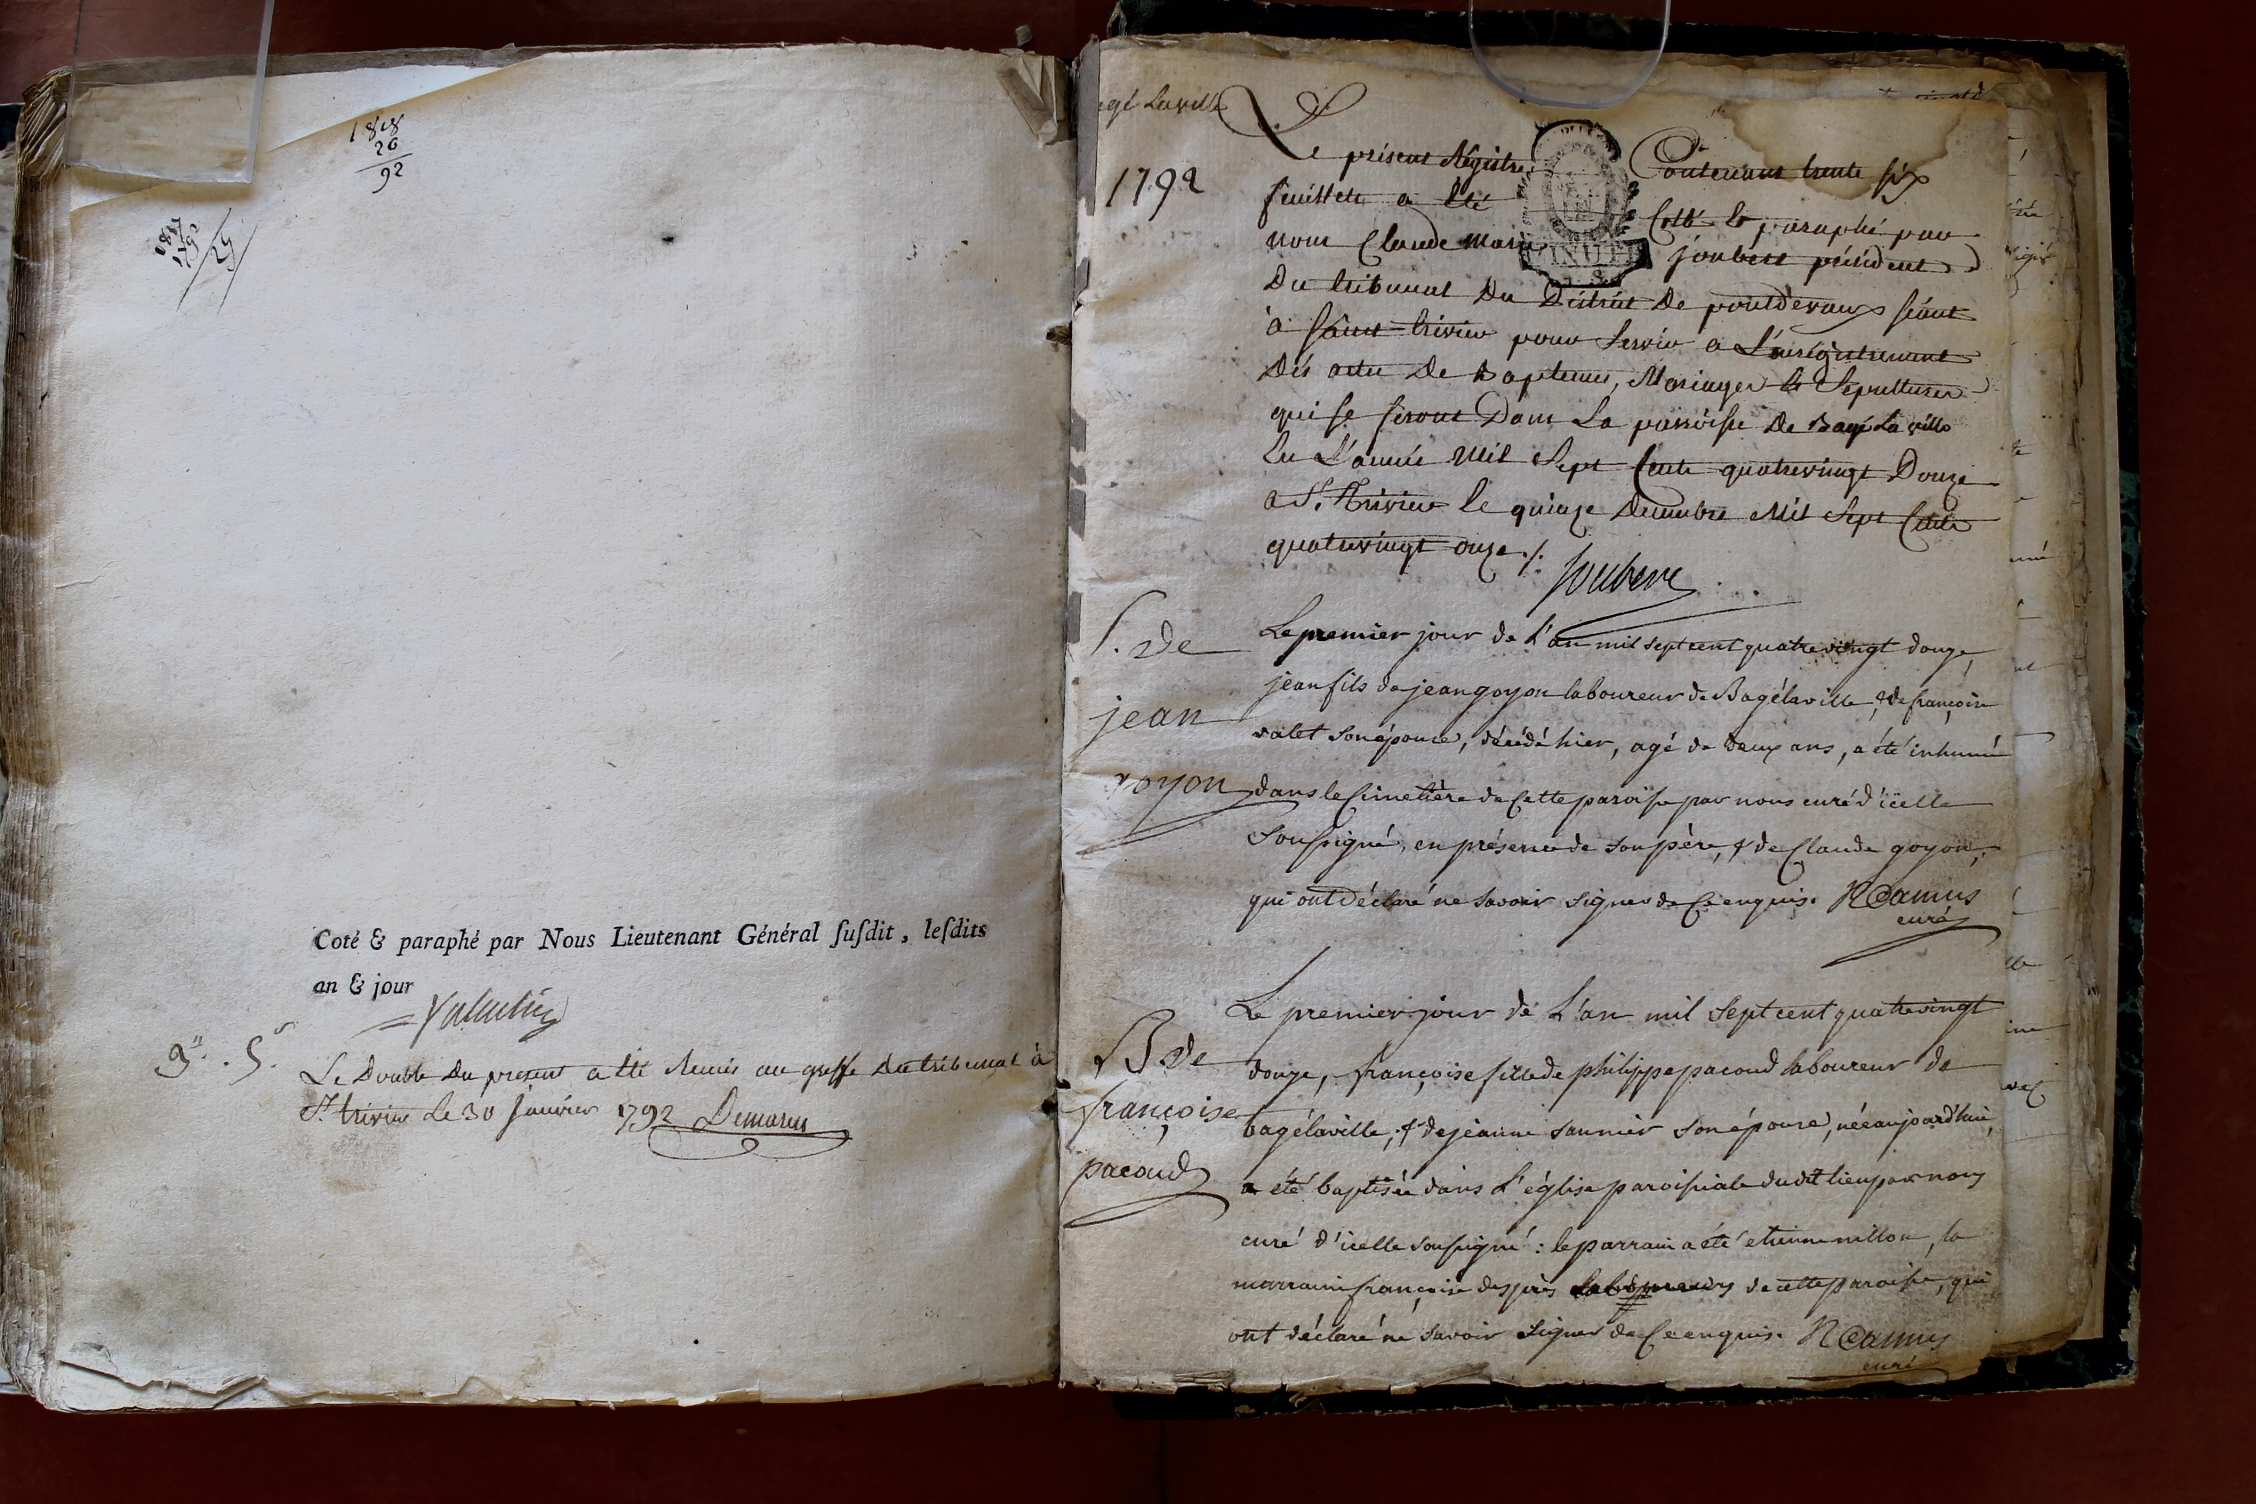 1818
26
92
1817
1792
25
Coté & paraphé par Nous Lieutenant Général ſuſdit, leſdits
an & jour
Valentin
9". 5ˢ.
Le Double Du present a été Remis au greffe Du tribunal à
St. trivier Le 30 Janvier 1792 Demarest
agé Laville
1792
Le présent Régistre Contenant trente six
feuillets a été Cotté & paraphé par
nous Claude Marie Joubert président
MINUTE
Du tribunal Du District De pontdevaux séant
à Saint-trivier pour Servir a L'enrégistrement
Dés actes De Baptemes, Mariages & Sépultures
qui se feront Dans La parroisse De Bagé La ville
En L'année Mil Sept Cents quatrevingt Douze
a St. Trivier le quinze Decembre Mil Sept Cents
quatrevingt onze ./.
Joubert
S. de
jean
goyon
Le premier jour de L'an mil sept cent quatre vingt douze,
jean fils de jean goyon laboureur de Bagélaville, & de françoise
valet son épouse, décédé hier, agé de deux ans, a été inhumé
dans le Cimetière de Cette paroisse par nous curé d'icelle
Soussigné, en présence de son père, & de Claude goyon,
qui ont déclaré ne savoir signer de Ce enquis. R Camus
curé
B de
françoise
pacoud
Le premier jour de L'an mil sept cent quatrevingt
douze, françoise fille de philippe pacoud laboureur de
bagélaville, & de jeanne saunier son épouse, née aujourd'hui,
a été baptisée dans L'église paroissiale dudit lieu par nous
curé d'icelle soussigné : le parrain a été etienne millon, la
marraine françoise desprès laboureurs de cette paroisse, qui
ont déclaré ne savoir signer de Ce enquis. R Camus
curé